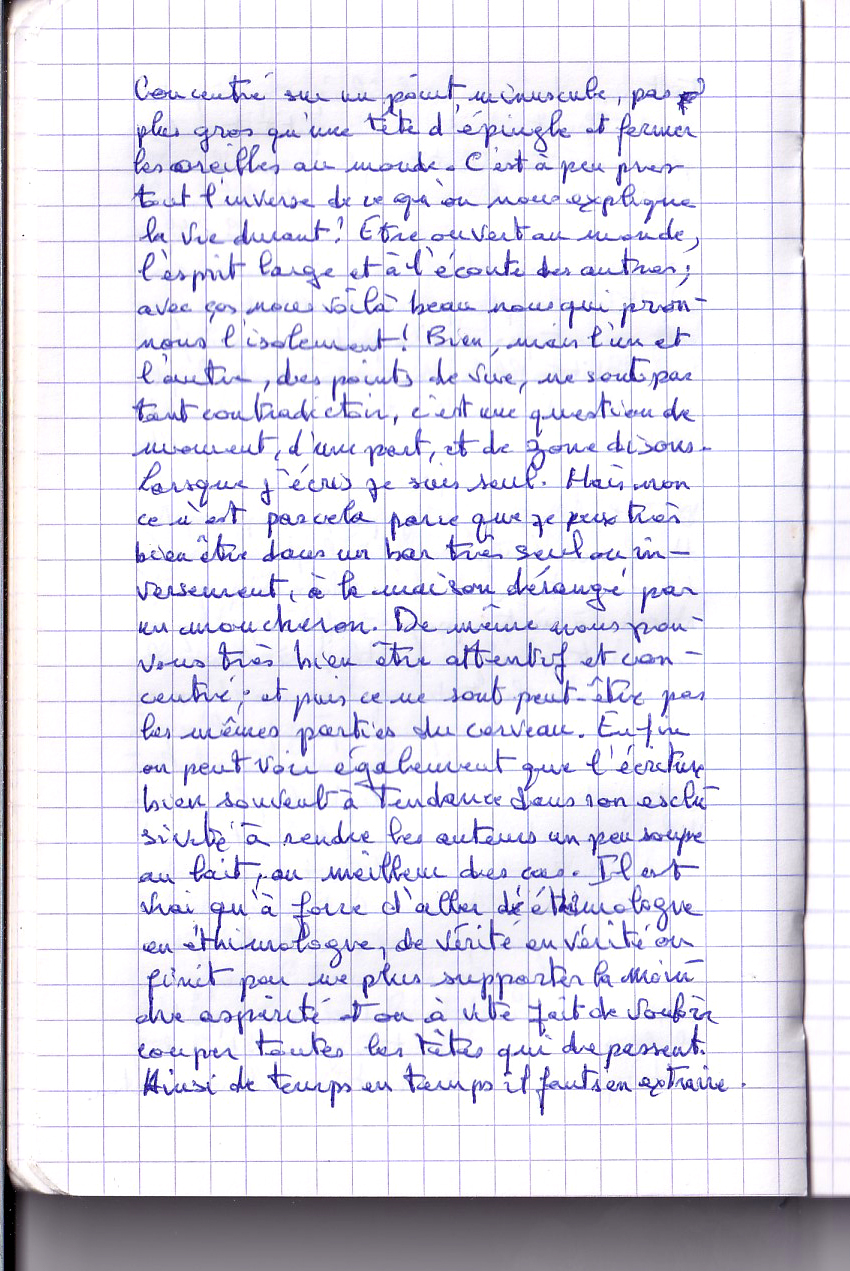 Concentré sur un point minuscule, pas
plus gros qu'une tête d'épingle et fermer
les oreilles au monde. C'est à peu près
tout l'inverse de ce qu'on nous explique
la vie durant! Etre ouvert au monde,
l'esprit large et à l'écoute des autres;
avec ças nous voilà beau nous qui pron-
nons l'isolement! Bien, mais l'un et
l'autre, des points de vue, ne sont pas
tant contradictoir, c'est une question de
moment, d'une part, et de zone disons.
Lorsque j'écris je suis seul. Mais non
ce n'est pas cela parce que je peux très
bien être dans un bar très seul ou in-
versement, à la maison dérangé par
un moucheron. De même nous pou-
vons très bien être attentif et con-
centré; et puis ce ne sont peut-être pas
les mêmes parties du cerveau. Enfin
on peut voir également que l'écriture
bien souvent à tendance dans son exclu
sivité à rendre les auteurs un peu soupe
au lait, au meilleur des cas. Il est
vrai qu'à force d'aller de éthimologue
en éthimologue, de vérité en vérité on
finit par ne plus supporter la moin
dre aspérité et on à vite fait de vouloir
couper toutes les têtes qui depassent.
Ainsi de temps en temps il faut s'en extraire.